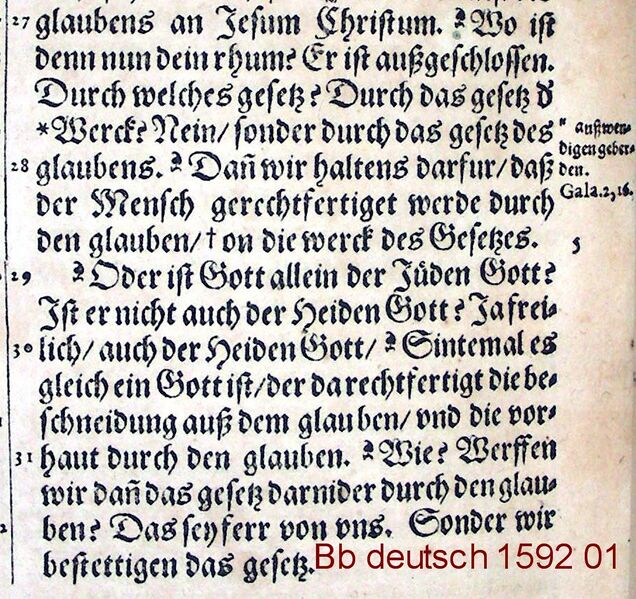 27 glaubens an Jesum Christum. Wo ist
denn nun dein rhum? Er ist außgeschlossen.
Durch welches gesetz? Durch das gesetz d̕
*Werck? Nein/ sonder durch das gesetz des
28 glaubens. Dañ wir haltens darfur/ daß
der Mensch gerechtfertiget werde durch
den glauben/ † on die werck des Gesetzes.
29 Oder ist Gott allein der Jüden Gott?
Ist er nicht auch der Heiden Gott? Ja frei⸗
30 lich/ auch der Heiden Gott/ Sintemal es
gleich ein Gott ist/ der da rechtfertigt die be⸗
schneidung auß dem glauben/ vnd die vor⸗
31 haut durch den glauben. Wie? Werffen
wir dañ das gesetz darnider durch den glau⸗
ben? Das sey ferr von vns. Sonder wir
bestettigen das gesetz.
" außwen⸗
digen geber⸗
den.
Gala.2,16.
Bb deutsch 1592 01